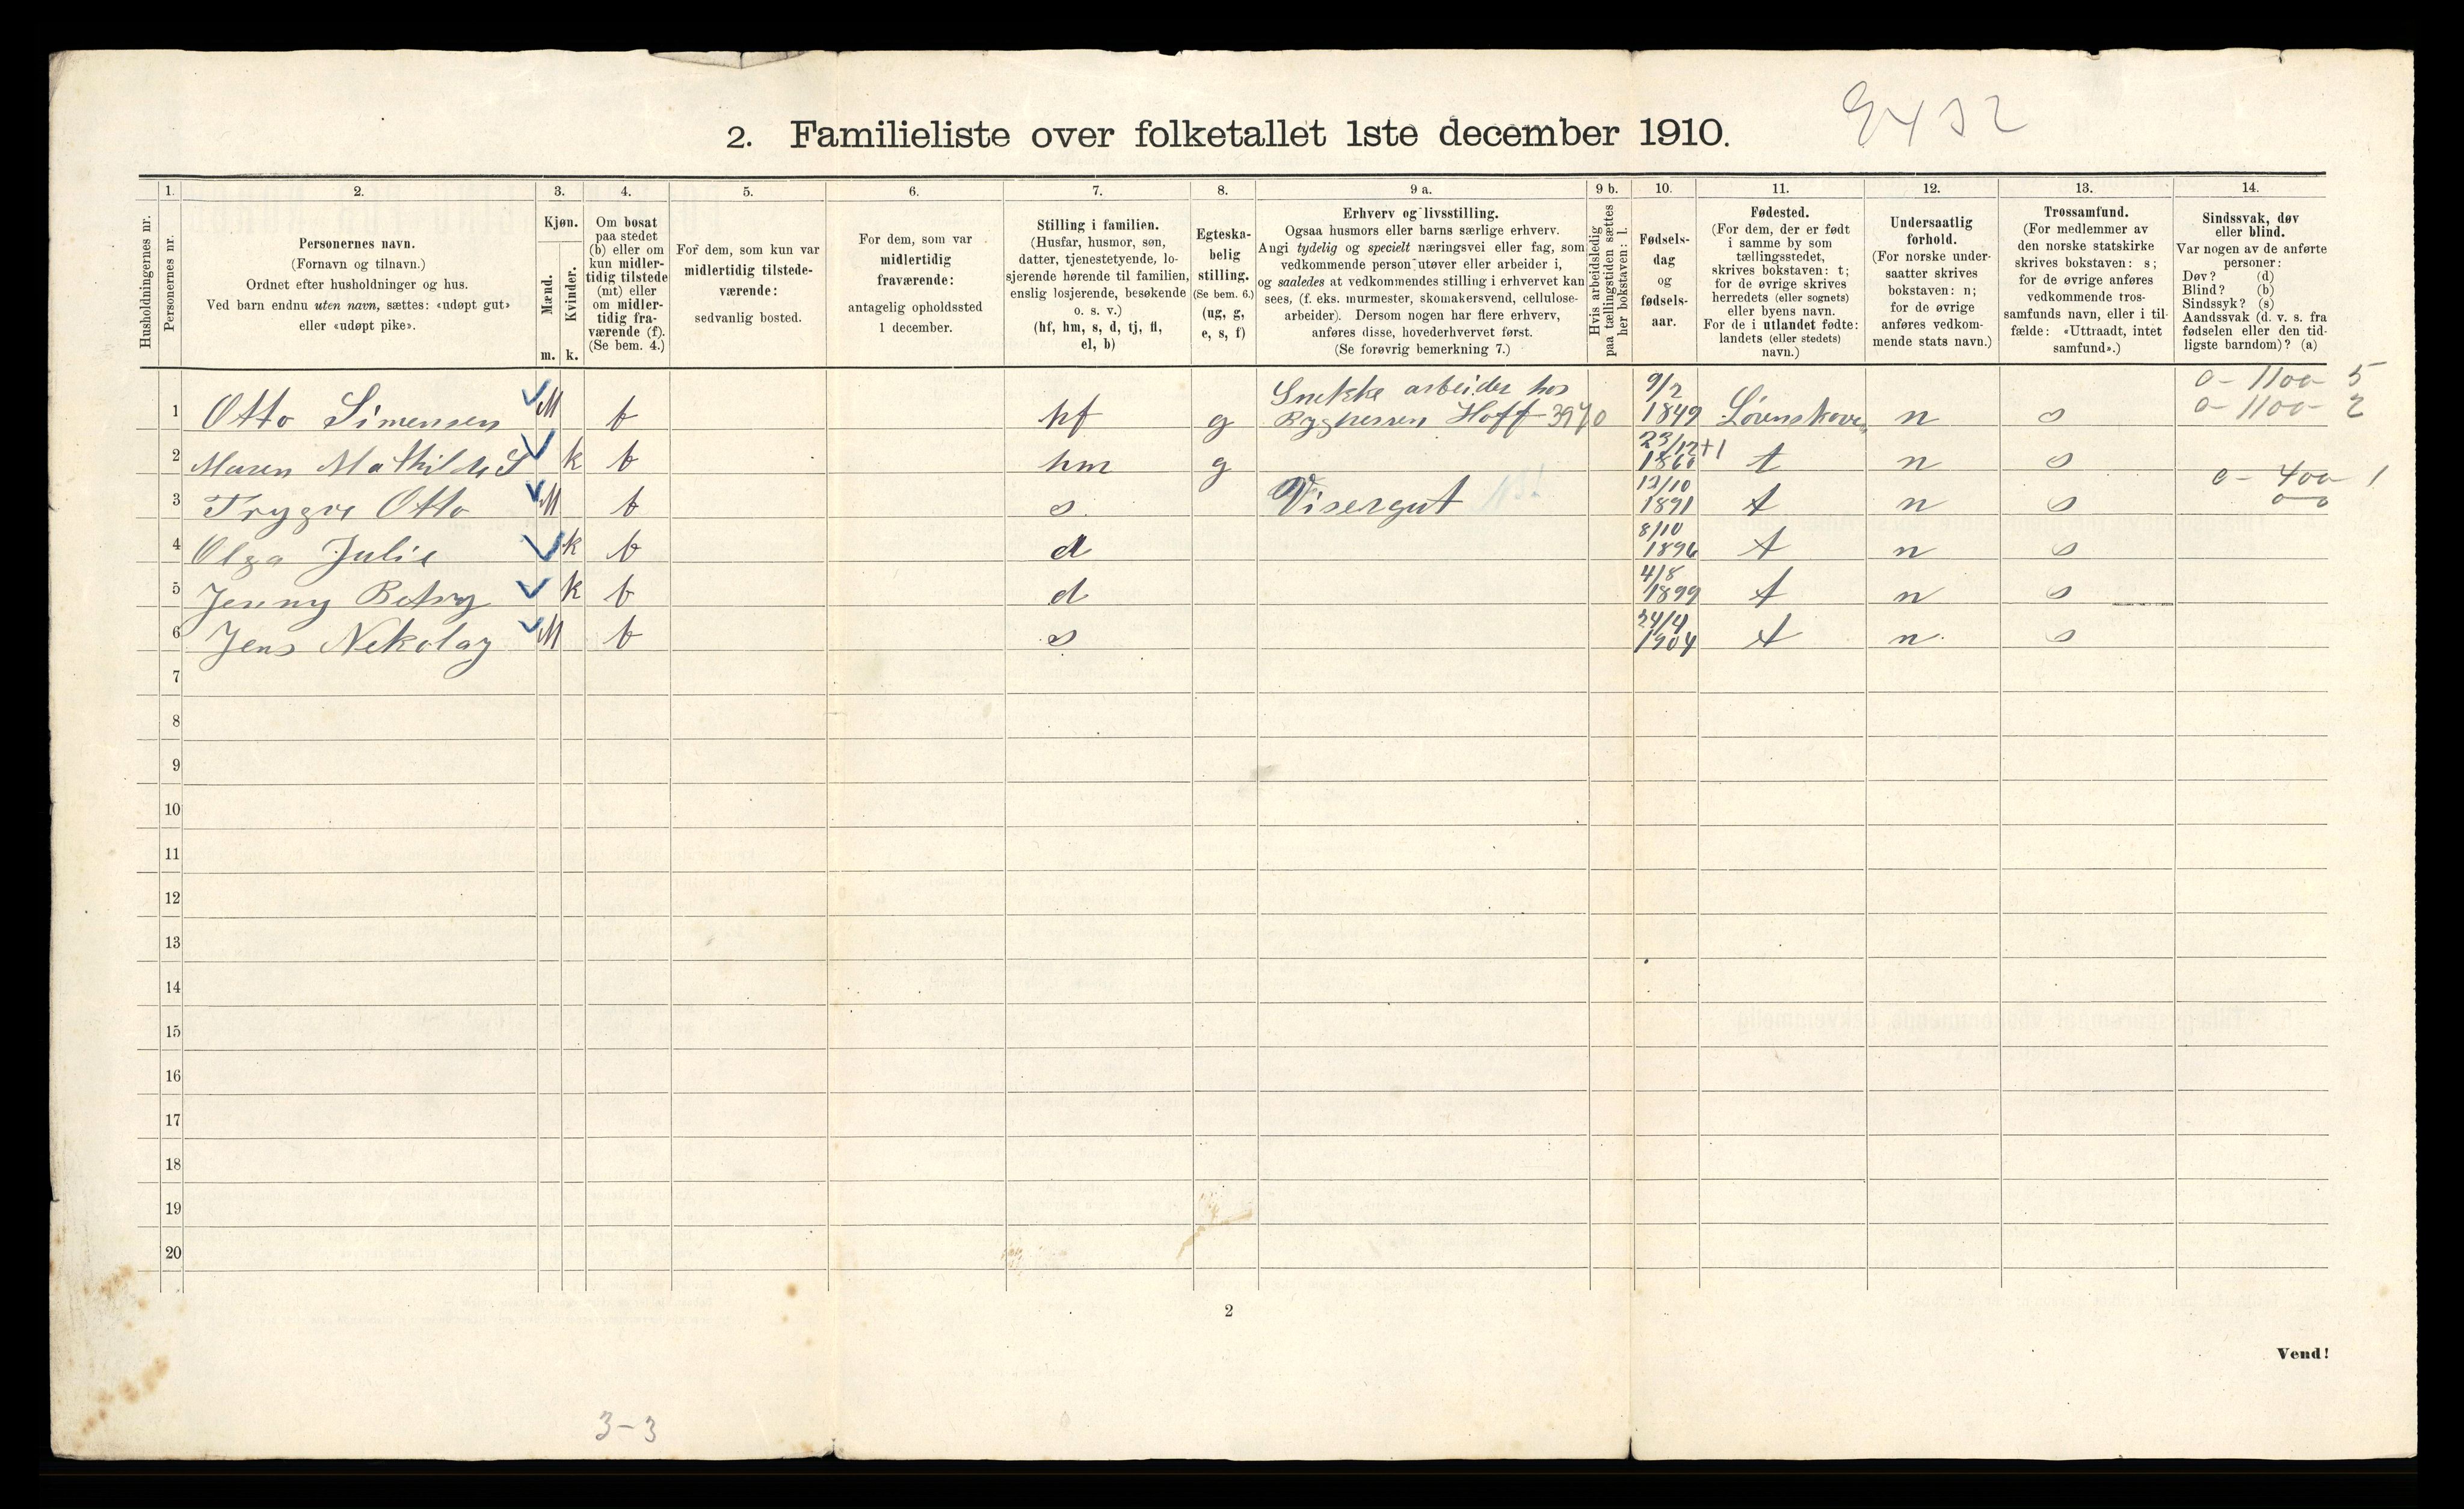 2. Familieliste over folketallet 1ste december 1910.
9432
Husholdningernes nr.
1.
Personernes nr.
2.
Personernes navn.
(Fornavn og tilnavn.)
Ordnet efter husholdninger og hus.
Ved barn endnu uten navn, sættes: «udøpt gut»
eller «udøpt pike».
3.
Kjøn.
Mænd.
Kvinder.
m. k.
4.
Om bosat
paa stedet
(b) eller om
kun midler-
tidig tilstede
(mt) eller
om midler-
tidig fra-
værende (f).
(Se bem. 4.)
5.
For dem, som kun var
midlertidig tilstede-
værende:
sedvanlig bosted.
6.
For dem, som var
midlertidig
fraværende:
antagelig opholdssted
1 december.
7.
Stilling i familien.
(Husfar, husmor, søn,
datter, tjenestetyende, lo-
sjerende hørende til familien,
enslig losjerende, besøkende
o. s. v.)
(hf, hm, s, d, tj, fl,
el, b)
8.
Egteska-
belig
stilling.
(Se bem. 6.)
(ug, g,
e, s, f)
9 a.
Erhverv og livsstilling.
Ogsaa husmors eller barns særlige erhverv.
Angi tydelig og specielt næringsvei eller fag, som
vedkommende person utøver eller arbeider i,
og saaledes at vedkommendes stilling i erhvervet kan
sees, (f. eks. murmester, skomakersvend, cellulose-
arbeider). Dersom nogen har flere erhverv,
anføres disse, hovederhvervet først.
(Se forøvrig bemerkning 7.)
9 b.
Hvis arbeidsledig
paa tællingstiden sættes
her bokstaven: l.
10.
Fødsels-
dag
og
fødsels-
aar.
11.
Fødested.
(For dem, der er født
i samme by som
tællingsstedet,
skrives bokstaven: t;
for de øvrige skrives
herredets (eller sognets)
eller byens navn.
For de i utlandet fødte:
landets (eller stedets)
navn.)
12.
Undersaatlig
forhold.
(For norske under-
saatter skrives
bokstaven: n;
for de øvrige
anføres vedkom-
mende stats navn.)
13.
Trossamfund.
(For medlemmer av
den norske statskirke
skrives bokstaven: s;
for de øvrige anføres
vedkommende tros-
samfunds navn, eller i til-
fælde: «Uttraadt, intet
samfund».)
14.
Sindssvak, døv
eller blind.
Var nogen av de anførte
personer:
Døv? (d)
Blind? (b)
Sindssyk? (s)
Aandssvak (d. v. s. fra
fødselen eller den tid-
ligste barndom)? (a)
1 Otto Simensen M b hf g Snekke arbeider hos Hoff 3970 9/2 1849 Lørenskoven n s 0-1100-5 0-1100-2
2 Maren Mathilde S k b hm g 23/12 +1 1860 t n s
3 Trygve Otto M b s Visergut 12/10 1891 t n s 0-400 1
4 Olga Julie k b d 8/10 1896 t n s
5 Jenny Betsy k b d 4/8 1899 t n s
6 Jens Nekolay M b s 24/4 1904 t n s
7
8
9
10
11
12
13
14
15
16
17
18
19
20
2
Vend!
3-3